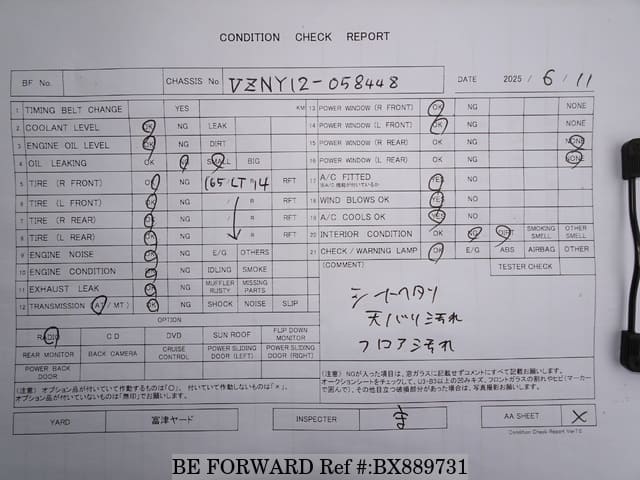 CONDITION CHECK REPORT
BF No. CHASSIS No. VZNY12-058448 DATE 2025/6/11
1 TIMING BELT CHANGE YES KM
2 COOLANT LEVEL OK NG LEAK
3 ENGINE OIL LEVEL OK NG DIRT
4 OIL LEAKING OK NG SMALL BIG
5 TIRE (R FRONT) OK NG 165 LT 14 RFT
6 TIRE (L FRONT) OK NG / R RFT
7 TIRE (R REAR) OK NG / R RFT
8 TIRE (L REAR) OK NG R RFT
9 ENGINE NOISE OK NG E/G OTHERS
10 ENGINE CONDITION OK NG IDLING SMOKE
11 EXHAUST LEAK OK NG MUFFLER RUSTY MISSING PARTS
12 TRANSMISSION (AT/MT) OK NG SHOCK NOISE SLIP
OPTION
RADIO CD DVD SUN ROOF FLIP DOWN MONITOR
REAR MONITOR BACK CAMERA CRUISE CONTROL POWER SLIDING DOOR (LEFT) POWER SLIDING DOOR (RIGHT)
POWER BACK DOOR
(注意) オプション品が付いていて作動するものは「○」、付いていて作動しないものは「×」、
オプション品が付いていないものは「無印」でお願いします。
13 POWER WINDOW (R FRONT) OK NG NONE
14 POWER WINDOW (L FRONT) OK NG NONE
15 POWER WINDOW (R REAR) OK NG NONE
16 POWER WINDOW (L REAR) OK NG NONE
17 A/C FITTED YES NO
18 WIND BLOWS OK YES NO
19 A/C COOLS OK YES NO
20 INTERIOR CONDITION OK NG DIRT SMOKING SMELL OTHER SMELL
21 CHECK/WARNING LAMP OK E/G ABS AIRBAG OTHER
(COMMENT) TESTER CHECK
シートヘタリ
天バリ汚れ
フロア汚れ
(注意) NGが入った項目は、窓ガラスに記載せずコメントにすべて記載お願いします。
オークションシートをチェックして、U3・B3以上の凹みキズ、フロントガラスの割れやヒビ(マーカー
で囲んで)、その他目立つ破損部分があった場合は、写真撮影お願いします。
YARD 富津ヤード INSPECTER AA SHEET ×
Condition Check Report Ver7.0
BE FORWARD Ref #:BX889731